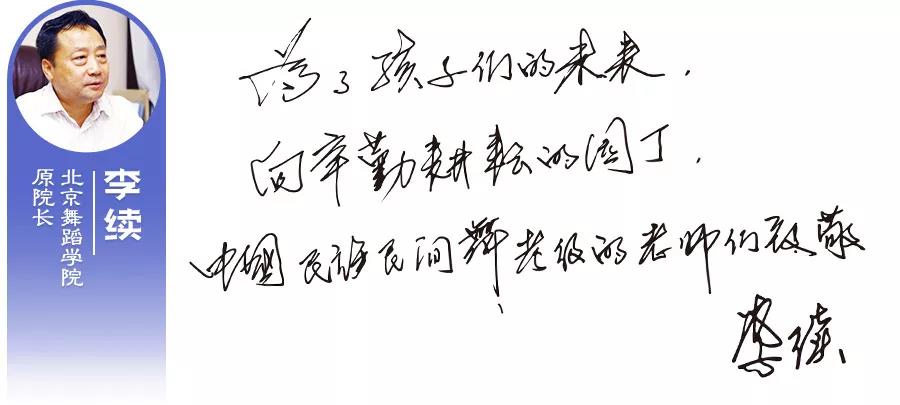 李续
北京舞蹈学院
原院长
为了孩子们的未来,
向辛勤耕耘的园丁,
中國民族民间舞考级的老师们致敬!
李续